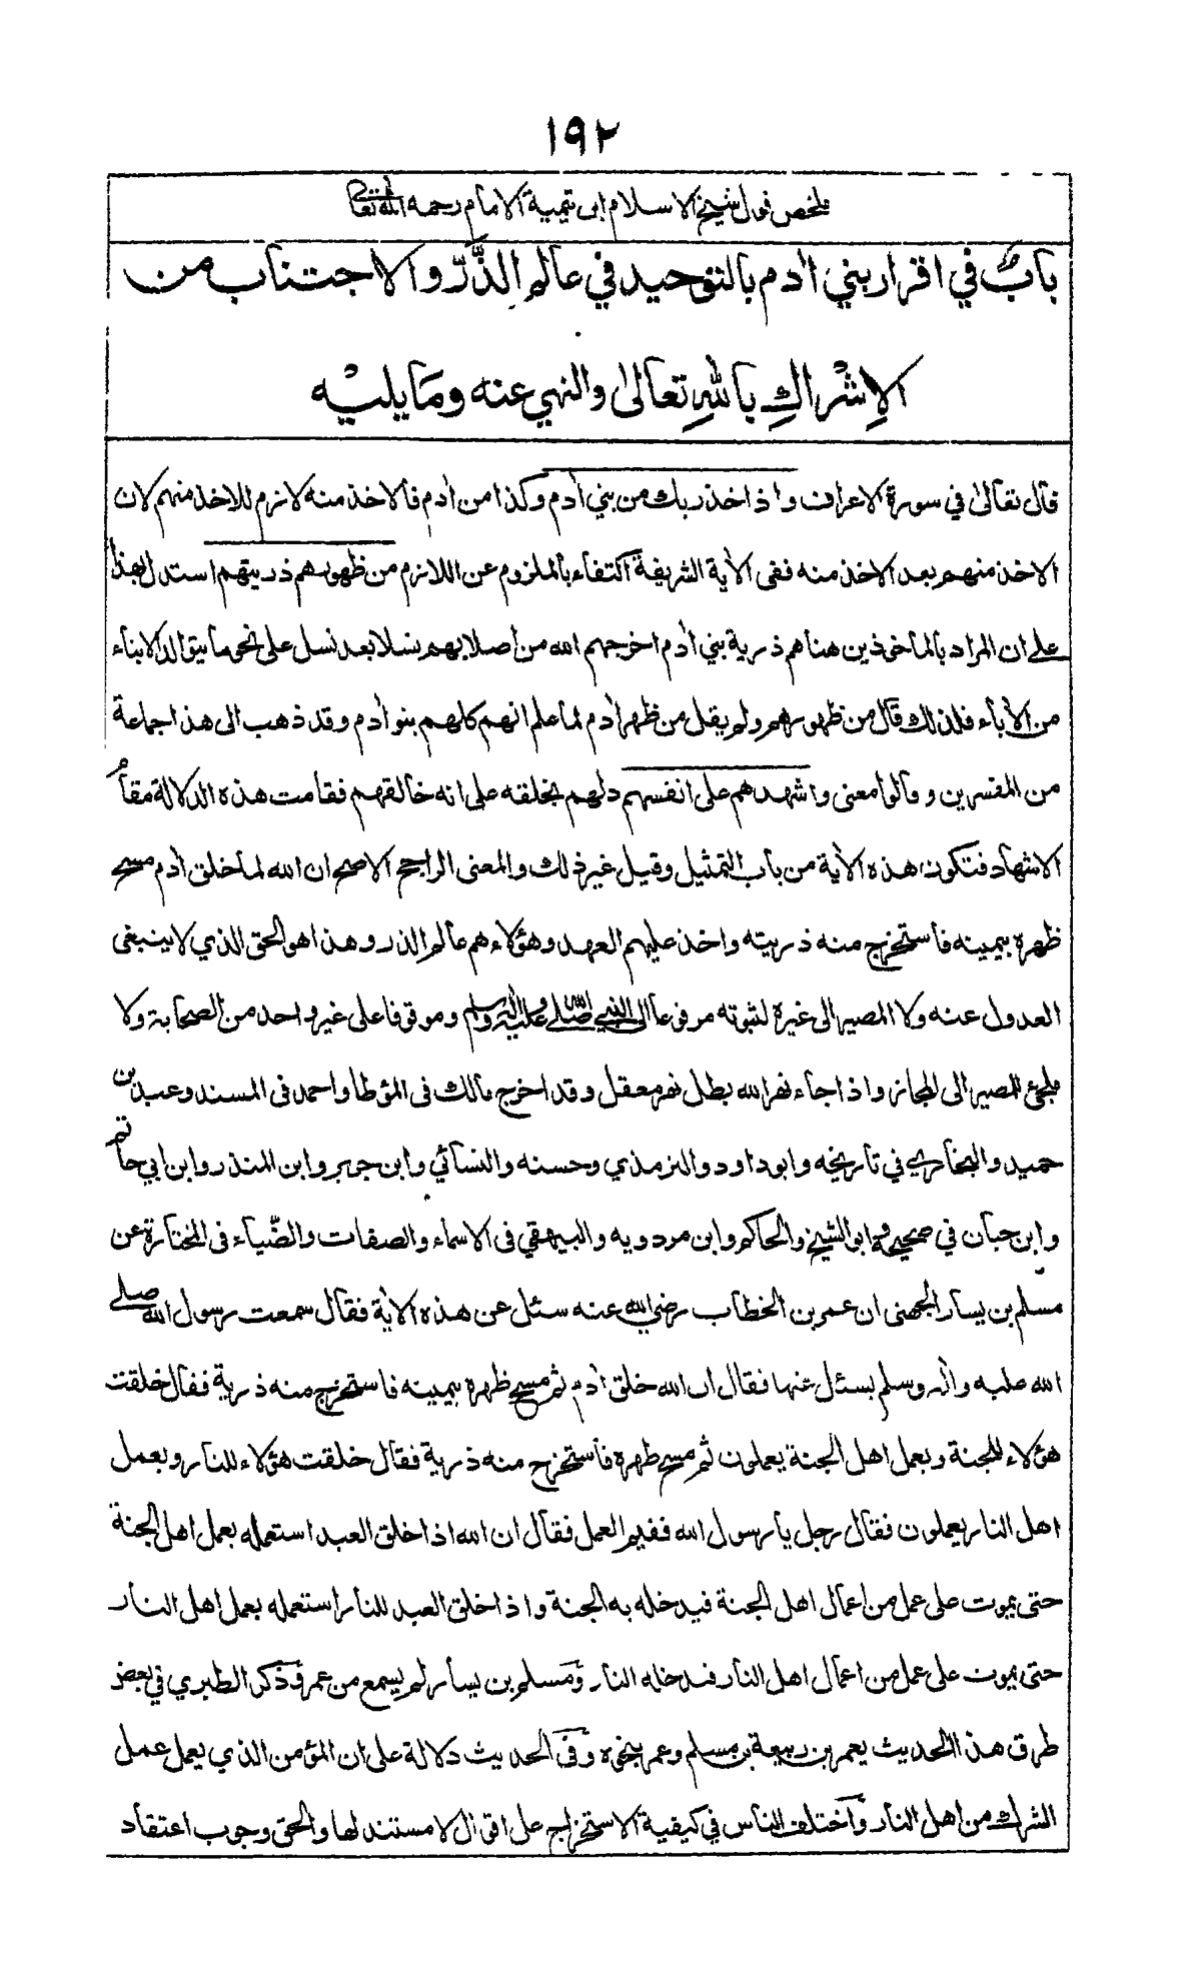 ١٩٢
ملخص قول شيخ الاسلام ابن تيمية الامام رحمه الله تعالى
بابٌ في اقرار بني اٰدم بالتوحيد في عالم الذَّرّ والاجتناب من
الاِشْراكِ بِاللهِ تعالىٰ والنهي عنه ومَا يليْه
قال تعالىٰ في سورة الاعراف واذ اخذ ربك من بني اٰدم وكذا من اٰدم فالاخذ منه لازم للاخذ منهم لان
الاخذ منهم بعد الاخذ منه ففى الاٰية الشريفة اكتفاء بالملزوم عن اللازم من ظهورهم ذريتهم استدل بهذا
على ان المراد بالماخوذين هنا هم ذرية بني اٰدم اخرجهم الله من اصلابهم نسلا بعد نسل على نحو ما يتوالد الابناء
من الاٰباء فلذلك قال من ظهورهم ولم يقل من ظهر اٰدم لما علم انهم كلهم بنو اٰدم وقد ذهب الى هذا جماعة
من المفسرين وقالوا معنى واشهدهم على انفسهم دلهم بخلقه على انه خالقهم فقامت هذه الدلالة مقام
الاشهاد فتكون هذه الاٰية من باب التمثيل وقيل غير ذلك والمعنى الراجح الاصح ان الله لما خلق اٰدم مسح
ظهره بيمينه فاستخرج منه ذريته واخذ عليهم العهد وهؤلاء هم عالم الذر وهذا هو الحق الذي لا ينبغى
العدول عنه ولا المصير الى غيره لثبوته مرفوعا الى النبي صلى الله عليه واٰله وسلم وموقوفا على غير واحد من الصحابة ولا
ملجئ للمصير الى المجاز واذا جاء نهر الله بطل نهر معقل وقد اخرج مالك فى المؤطا واحمد فى المسند وعبد بن
حميد والبخاري في تاريخه وابو داود والترمذي وحسنه والنسائي وابن جرير وابن المنذر وابن ابي حاتم
وابن حبان في صحيحه وابو الشيخ والحاكم وابن مردويه والبيهقي فى الاسماء والصفات والضّياء فى المختارة عن
مسلم بن يسار الجهنى ان عمر بن الخطاب رضي الله عنه سئل عن هذه الاٰية فقال سمعت رسول الله صلى
الله عليه واٰله وسلم يسئل عنها فقال ان الله خلق اٰدم ثم مسح ظهره بيمينه فاستخرج منه ذرية فقال خلقت
هؤلاء للجنة وبعمل اهل الجنة يعملون ثم مسح ظهره فاستخرج منه ذرية فقال خلقت هؤلاء للنار وبعمل
اهل النار يعملون فقال رجل يا رسول الله ففيم العمل فقال ان الله اذا خلق العبد استعمله بعمل اهل الجنة
حتى يموت على عمل من اعمال اهل الجنة فيدخله به الجنة واذا خلق العبد للنار استعمله بعمل اهل النار
حتى يموت على عمل من اعمال اهل النار فيدخله النار ومسلم بن يسار لم يسمع من عمر وذكر الطبري في بعض
طرق هذا الحديث يعمر بن ربيعة بن مسلم وعمر بنحوه وفى الحديث دلالة على ان المؤمن الذي يعمل عمل
الشرك من اهل النار واختلف الناس في كيفية الاستخراج على اقوال لا مستند لها والحق وجوب اعتقاد